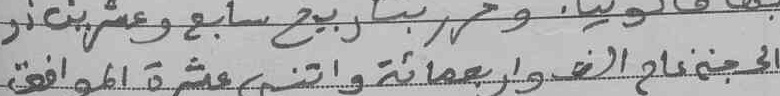 وحرر بتاريخ سابع وعشرين ذو
الحجة عام الف واربعمائة واثني عشرة الموافق